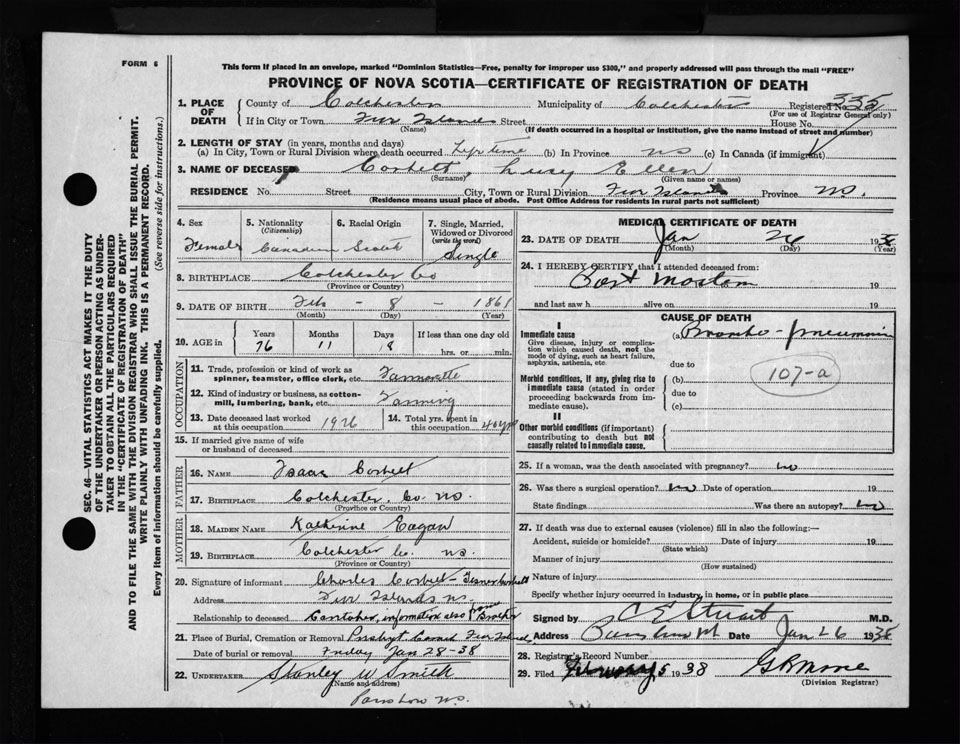 FORM 6
This form if placed in an envelope, marked "Dominion Statistics—Free, penalty for improper use $300," and properly addressed will pass through the mail "FREE"
PROVINCE OF NOVA SCOTIA—CERTIFICATE OF REGISTRATION OF DEATH
1. PLACE OF DEATH County of Colchester Municipality of Colchester Registered No. 335
(For use of Registrar General only)
If in City or Town Five Islands Street House No.
(Name) (If death occurred in a hospital or institution, give the name instead of street and number)
2. LENGTH OF STAY (in years, months and days)
(a) In City, Town or Rural Division where death occurred Lifetime (b) In Province NS (c) In Canada (if immigrant)
3. NAME OF DECEASED Corbett, Lucy Ellen
(Surname) (Given name or names)
RESIDENCE No. Street City, Town or Rural Division Five Islands Province NS.
(Residence means usual place of abode. Post Office Address for residents in rural parts not sufficient)
4. Sex Female
5. Nationality (Citizenship) Canadian
6. Racial Origin Scotch
7. Single, Married, Widowed or Divorced (write the word) Single
8. BIRTHPLACE Colchester Co
(Province or Country)
9. DATE OF BIRTH Feb - 8 - 1861
(Month) (Day) (Year)
10. AGE in Years 76 Months 11 Days 18 If less than one day old hrs. or min.
OCCUPATION
11. Trade, profession or kind of work as spinner, teamster, office clerk, etc.
12. Kind of industry or business, as cotton-mill, lumbering, bank, etc. Farming
13. Date deceased last worked at this occupation 1926
14. Total yrs. spent in this occupation 40 yrs
15. If married give name of wife or husband of deceased
FATHER
16. Name Isaac Corbett
17. Birthplace Colchester, Co. NS.
(Province or Country)
MOTHER
18. Maiden Name Katherine Eagan
19. Birthplace Colchester Co. NS.
(Province or Country)
20. Signature of informant Charles Corbett
Address Five Islands NS.
Relationship to deceased information also from Brother
21. Place of Burial, Cremation or Removal Five Islands
Date of burial or removal Friday Jan 28-38
22. UNDERTAKER Stanley W Smith
(Name and address)
NS.
MEDICAL CERTIFICATE OF DEATH
23. DATE OF DEATH Jan 26 1938
(Month) (Day) (Year)
24. I HEREBY CERTIFY that I attended deceased from:
Post Mortom 19
and last saw h alive on 19
CAUSE OF DEATH
I
Immediate cause
Give disease, injury or complication which caused death, not the mode of dying, such as heart failure, asphyxia, asthenia, etc.
(a) Broncho-pneumonia
due to
Morbid conditions, if any, giving rise to immediate cause (stated in order proceeding backwards from immediate cause).
(b) 107-a
due to
(c)
II
Other morbid conditions (if important) contributing to death but not causally related to immediate cause.
25. If a woman, was the death associated with pregnancy? no
26. Was there a surgical operation? no Date of operation 19
State findings Was there an autopsy? no
27. If death was due to external causes (violence) fill in also the following:—
Accident, suicide or homicide? Date of injury 19
(State which)
Manner of injury
(How sustained)
Nature of injury
Specify whether injury occurred in industry, in home, or in public place
Signed by C E Stuart M.D.
Address Date Jan 26 1938
28. Registrar's Record Number
29. Filed February 5 1938
(Division Registrar)
SEC. 46— VITAL STATISTICS ACT MAKES IT THE DUTY
OF THE UNDERTAKER OR PERSON ACTING AS UNDER-
TAKER TO OBTAIN ALL THE PARTICULARS REQUIRED
IN THE "CERTIFICATE OF REGISTRATION OF DEATH"
AND TO FILE THE SAME WITH THE DIVISION REGISTRAR WHO SHALL ISSUE THE BURIAL PERMIT.
WRITE PLAINLY WITH UNFADING INK. THIS IS A PERMANENT RECORD.
Every item of information should be carefully supplied. (See reverse side for instructions.)